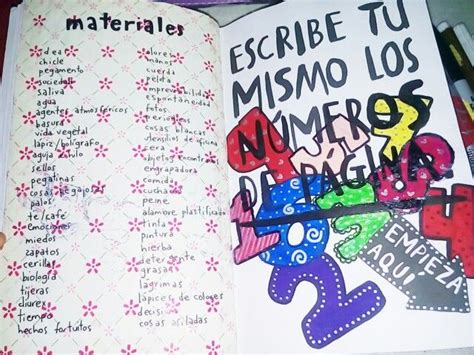 materiales
idea
chicle
pegamento
suciedad
saliva
agua
agentes atmosféricos
basura
vida vegetal
lápiz/bolígrafo
aguja e hilo
sellos
pegatinas
cosas pegajosas
palos
te/café
emociones
miedos
zapatos
cerillas
biología
tijeras
tiempo
hechos fortuitos
olores
manos
cuerda
pelota
imprevisibilidad
espontaneidad
fotos
periódicos
cosas blancas
utensilios de oficina
cera
objetos encontrados
grapadora
comida
peine
alambre plastificado
tinta
pintura
hierba
detergente
grasa
lagrimas
lápices de colores
cosas afiladas
ESCRIBE TU
MISMO LOS
NÚMEROS
DE PÁGINA.
EMPIEZA
AQUÍ
2